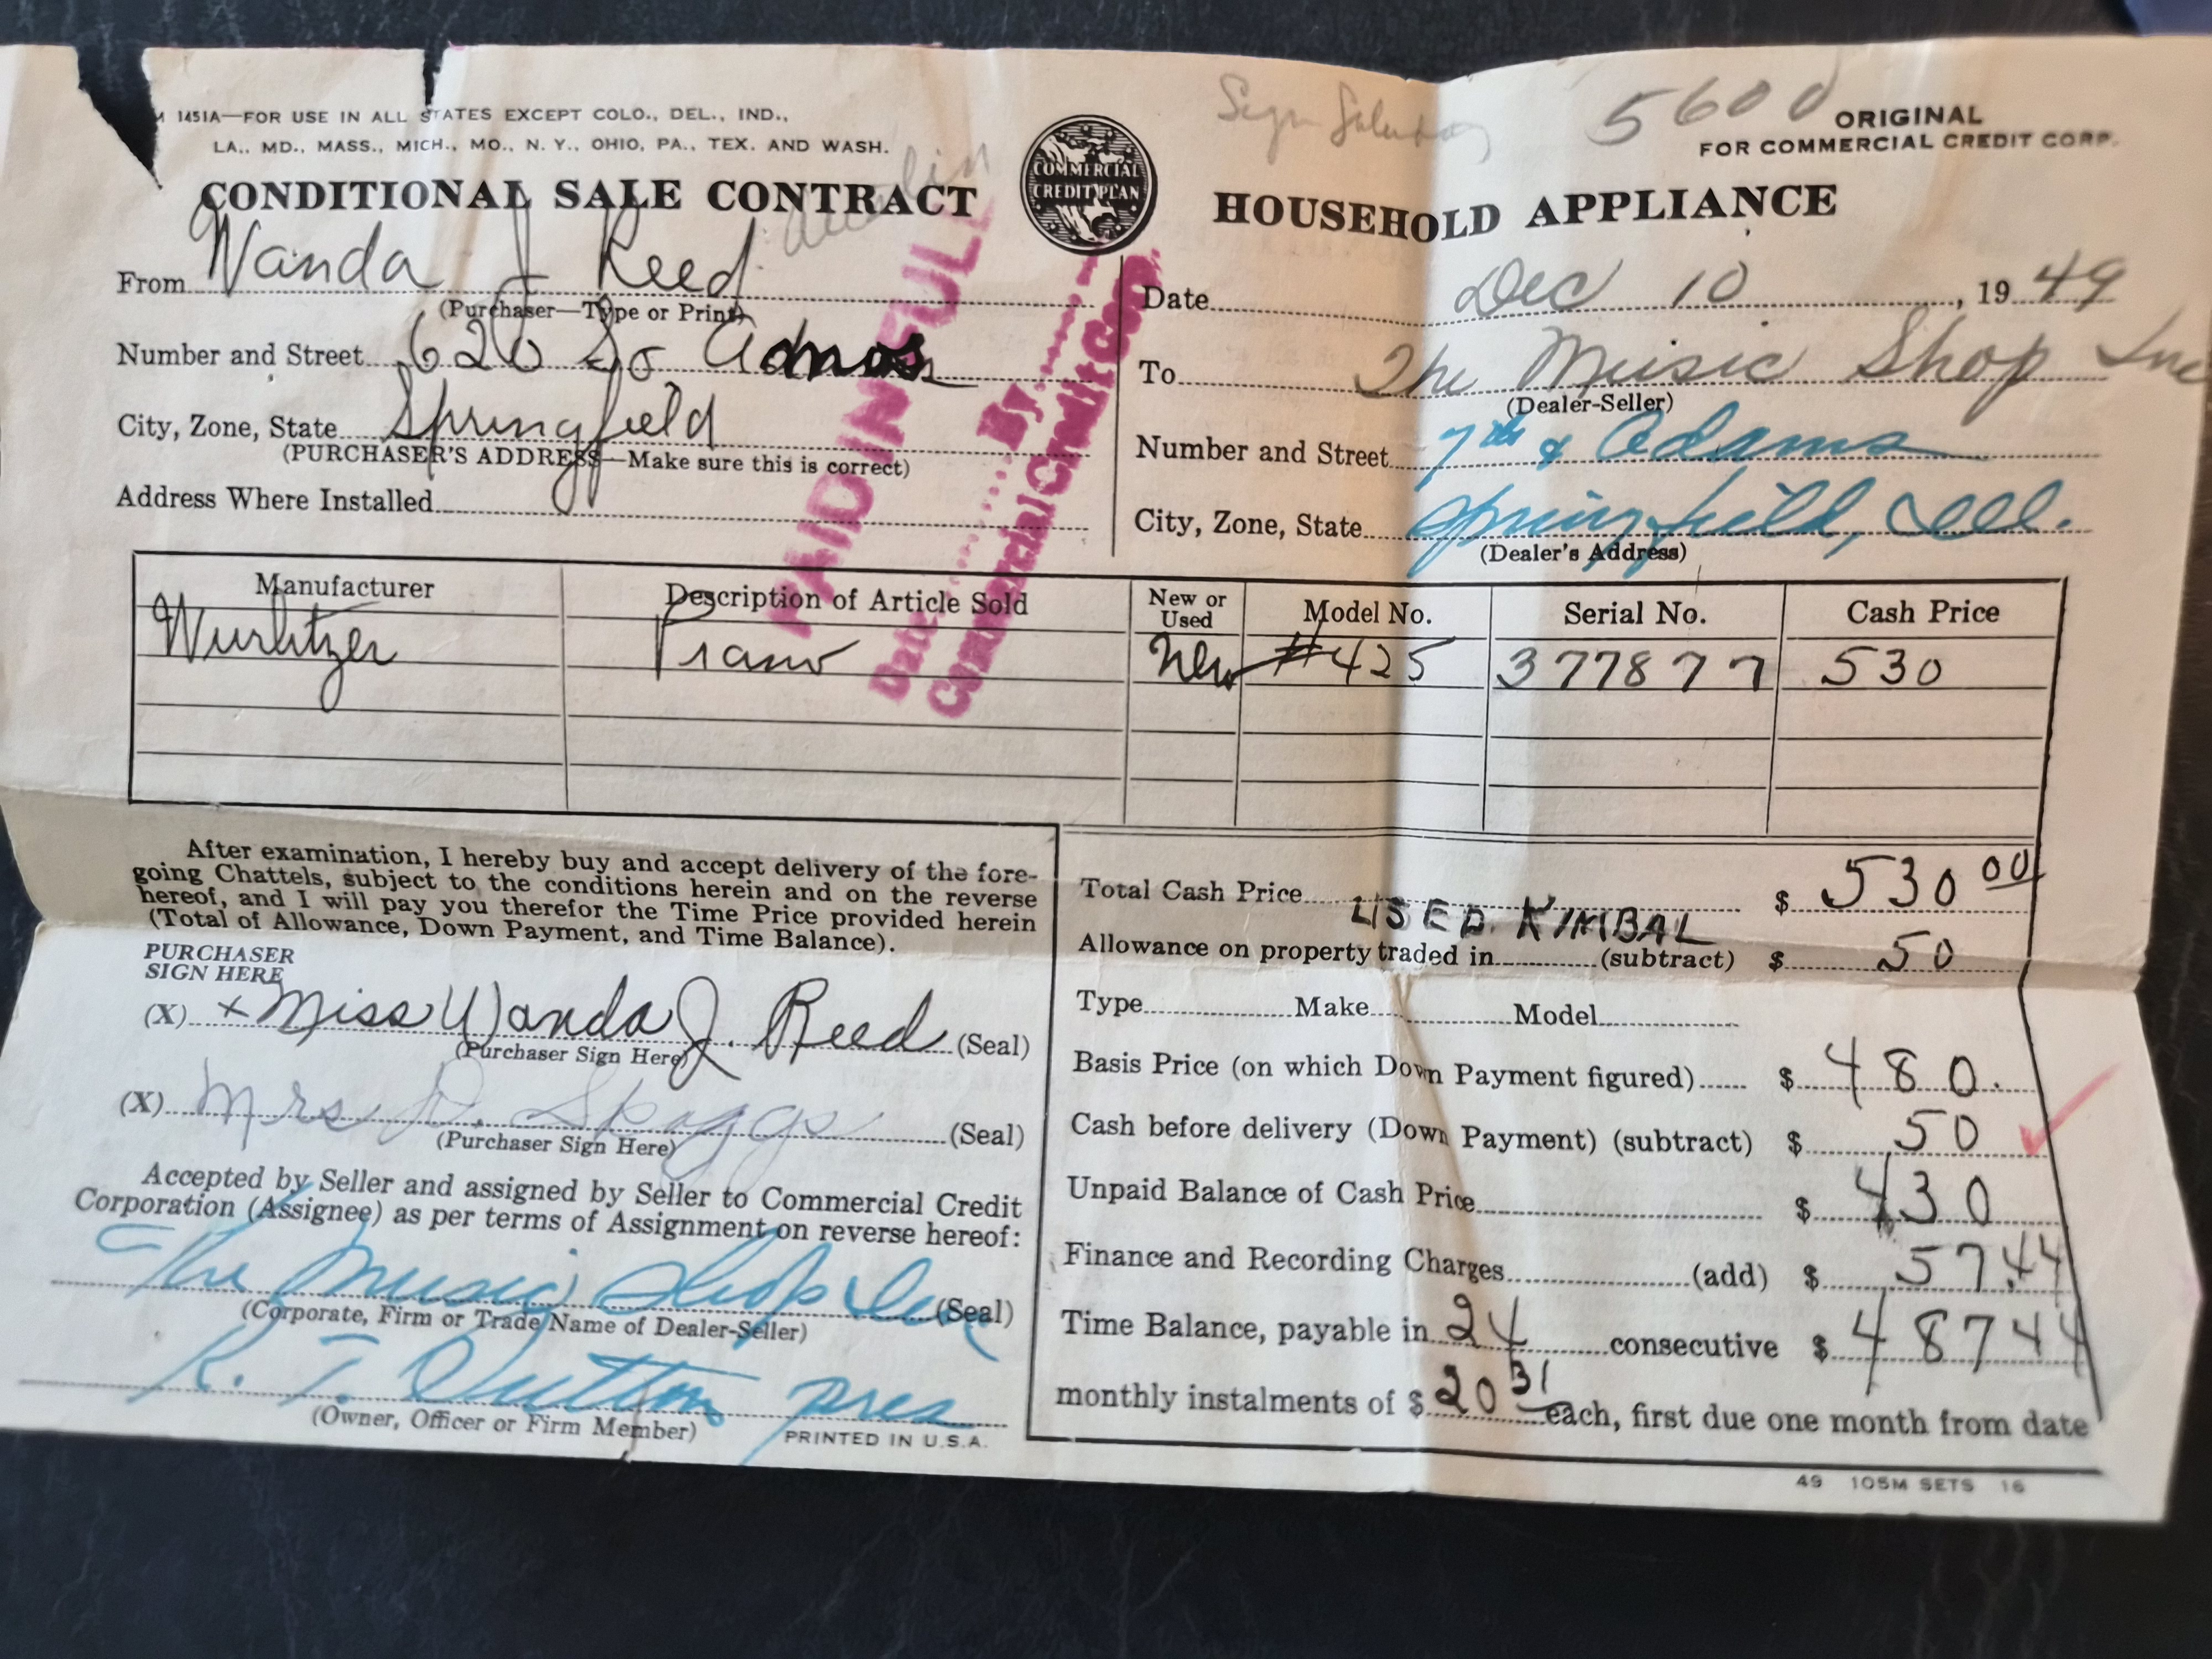 M 1451A—FOR USE IN ALL STATES EXCEPT COLO., DEL., IND.,
LA., MD., MASS., MICH., MO., N. Y., OHIO, PA., TEX. AND WASH.
CONDITIONAL SALE CONTRACT
COMMERCIAL
CREDIT PLAN
ORIGINAL
FOR COMMERCIAL CREDIT CORP.
5600
HOUSEHOLD APPLIANCE
From Wanda J Reed
(Purchaser—Type or Print)
Number and Street 626 So
City, Zone, State Springfield
(PURCHASER'S ADDRESS—Make sure this is correct)
Address Where Installed
PAID IN FULL
Date
By
Commercial Credit Corp.
Date Dec 10, 19 49
To The Music Shop Inc
(Dealer-Seller)
Number and Street 7th & Adams
City, Zone, State Springfield, Ill.
(Dealer's Address)
Manufacturer Description of Article Sold New or Used Model No. Serial No. Cash Price
Wurlitzer Piano New #425 377877 530
After examination, I hereby buy and accept delivery of the fore-
going Chattels, subject to the conditions herein and on the reverse
hereof, and I will pay you therefor the Time Price provided herein
(Total of Allowance, Down Payment, and Time Balance).
PURCHASER
SIGN HERE
(X) x Miss Wanda J. Reed (Seal)
(Purchaser Sign Here)
(X) Mrs. (Seal)
(Purchaser Sign Here)
Accepted by Seller and assigned by Seller to Commercial Credit
Corporation (Assignee) as per terms of Assignment on reverse hereof:
The Music Shop Inc (Seal)
(Corporate, Firm or Trade Name of Dealer-Seller)
Pres
(Owner, Officer or Firm Member)
PRINTED IN U.S.A.
Total Cash Price $ 530 00
USED KIMBAL
Allowance on property traded in (subtract) $ 50
Type Make Model
Basis Price (on which Down Payment figured) $ 480.
Cash before delivery (Down Payment) (subtract) $ 50
Unpaid Balance of Cash Price $ 430
Finance and Recording Charges (add) $ 57.44
Time Balance, payable in 24 consecutive $ 487 44
monthly instalments of $ 20 31 each, first due one month from date
49 105M SETS 16